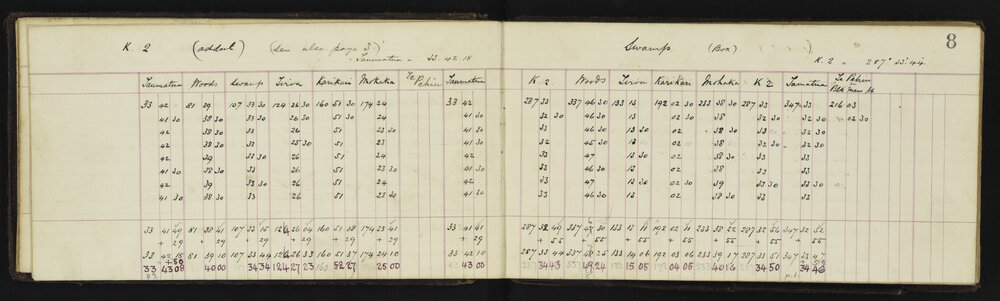 K. 2 (addnl) (see also page 3)
Taumatua = 33 . 42 . 18
Taumatua Woods Swamp Tirioa Karikari Moheka Te Pehiri Taumatua
33 42 81 39 107 33 30 124 26 30 160 51 30 174 24 33 42
41 30 38 30 33 30 26 30 51 30 24 41 30
42 38 30 33 26 51 23 30 41 30
42 38 30 33 25 30 51 23 41 30
42 39 33 30 26 51 24 42
41 30 38 30 33 26 51 23 30 41 30
42 39 33 30 26 51 24 42
41 30 38 30 33 26 51 23 30 41 30
33 41 49 81 38 41 107 33 15 124 26 04 160 51 08 174 23 41 33 41 41
+ 29 + 29 + 29 + 29 + 29 + 29 + 29
33 42 18 81 39 10 107 33 44 124 26 33 160 51 37 174 24 10 33 42 10
+ 50
33 43 08 40 00 34 34 124 27 23 160 52 27 25 00 43 00
8
Swamp (Box)
K. 2 = 287° 33' 44
K. 2 Woods Tirioa Karikari Moheka K 2 Taumatua Te Pehiri
287 33 337 46 30 133 13 192 02 30 233 38 30 287 33 347 33 216 03
32 30 46 30 13 02 38 32 30 32 30 02 30
33 46 30 13 30 02 38 33 32 30
32 45 30 13 02 38 32 30 33
33 47 13 30 02 38 33 33
33 46 30 13 02 38 33 33
33 47 13 30 02 30 39 33 30 33 30
33 46 30 13 02 38 30 33 33
287 32 49 337 46 30 133 13 11 192 02 11 233 38 22 287 32 56 347 32 52
+ 55 + 55 + 55 + 55 + 55 + 55 + 55
287 33 44 337 133 14 06 192 03 06 233 39 17 287 33 51 347 33 47
34 43 337 48 24 133 15 05 192 04 05 233 40 16 287 34 50 347 34 46